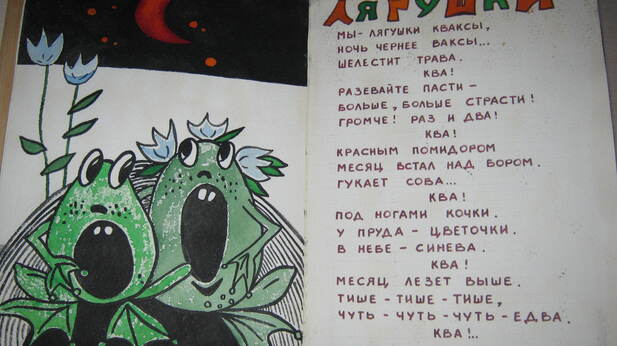 ЛЯГУШКИ
МЫ - ЛЯГУШКИ КВАКСЫ,
НОЧЬ ЧЕРНЕЕ ВАКСЫ...
ШЕЛЕСТИТ ТРАВА.
КВА!
РАЗЕВАЙТЕ ПАСТИ -
БОЛЬШЕ, БОЛЬШЕ СТРАСТИ!
ГРОМЧЕ! РАЗ И ДВА!
КВА!
КРАСНЫМ ПОМИДОРОМ
МЕСЯЦ ВСТАЛ НАД БОРОМ.
ГУКАЕТ СОВА...
КВА!
ПОД НОГАМИ КОЧКИ.
У ПРУДА - ЦВЕТОЧКИ.
В НЕБЕ - СИНЕВА.
КВА!
МЕСЯЦ ЛЕЗЕТ ВЫШЕ.
ТИШЕ - ТИШЕ - ТИШЕ,
ЧУТЬ - ЧУТЬ - ЧУТЬ - ЕДВА.
КВА!..